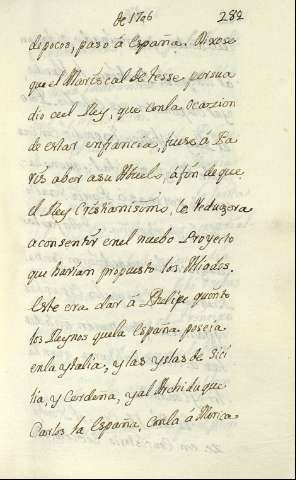 de 1706 282
de pocos, paso á España. Dixose
que el Mariscal de tesse persua
dio al Rey, que con la ocazion
de estar en francia, fuese á Pa
ris aber a su Abuelo, a fin de que
el Rey Cristianisimo, le reduzera
a consentir en el nuebo Proyecto
que harian propuesto los Aliados.
Este era dar á Phelipe quinto
los Reynos que la España poseia
en la ytalia, y las yslas de Sici
lia, y Cerdeña, y al Archiduque
Carlos la España, con la América.